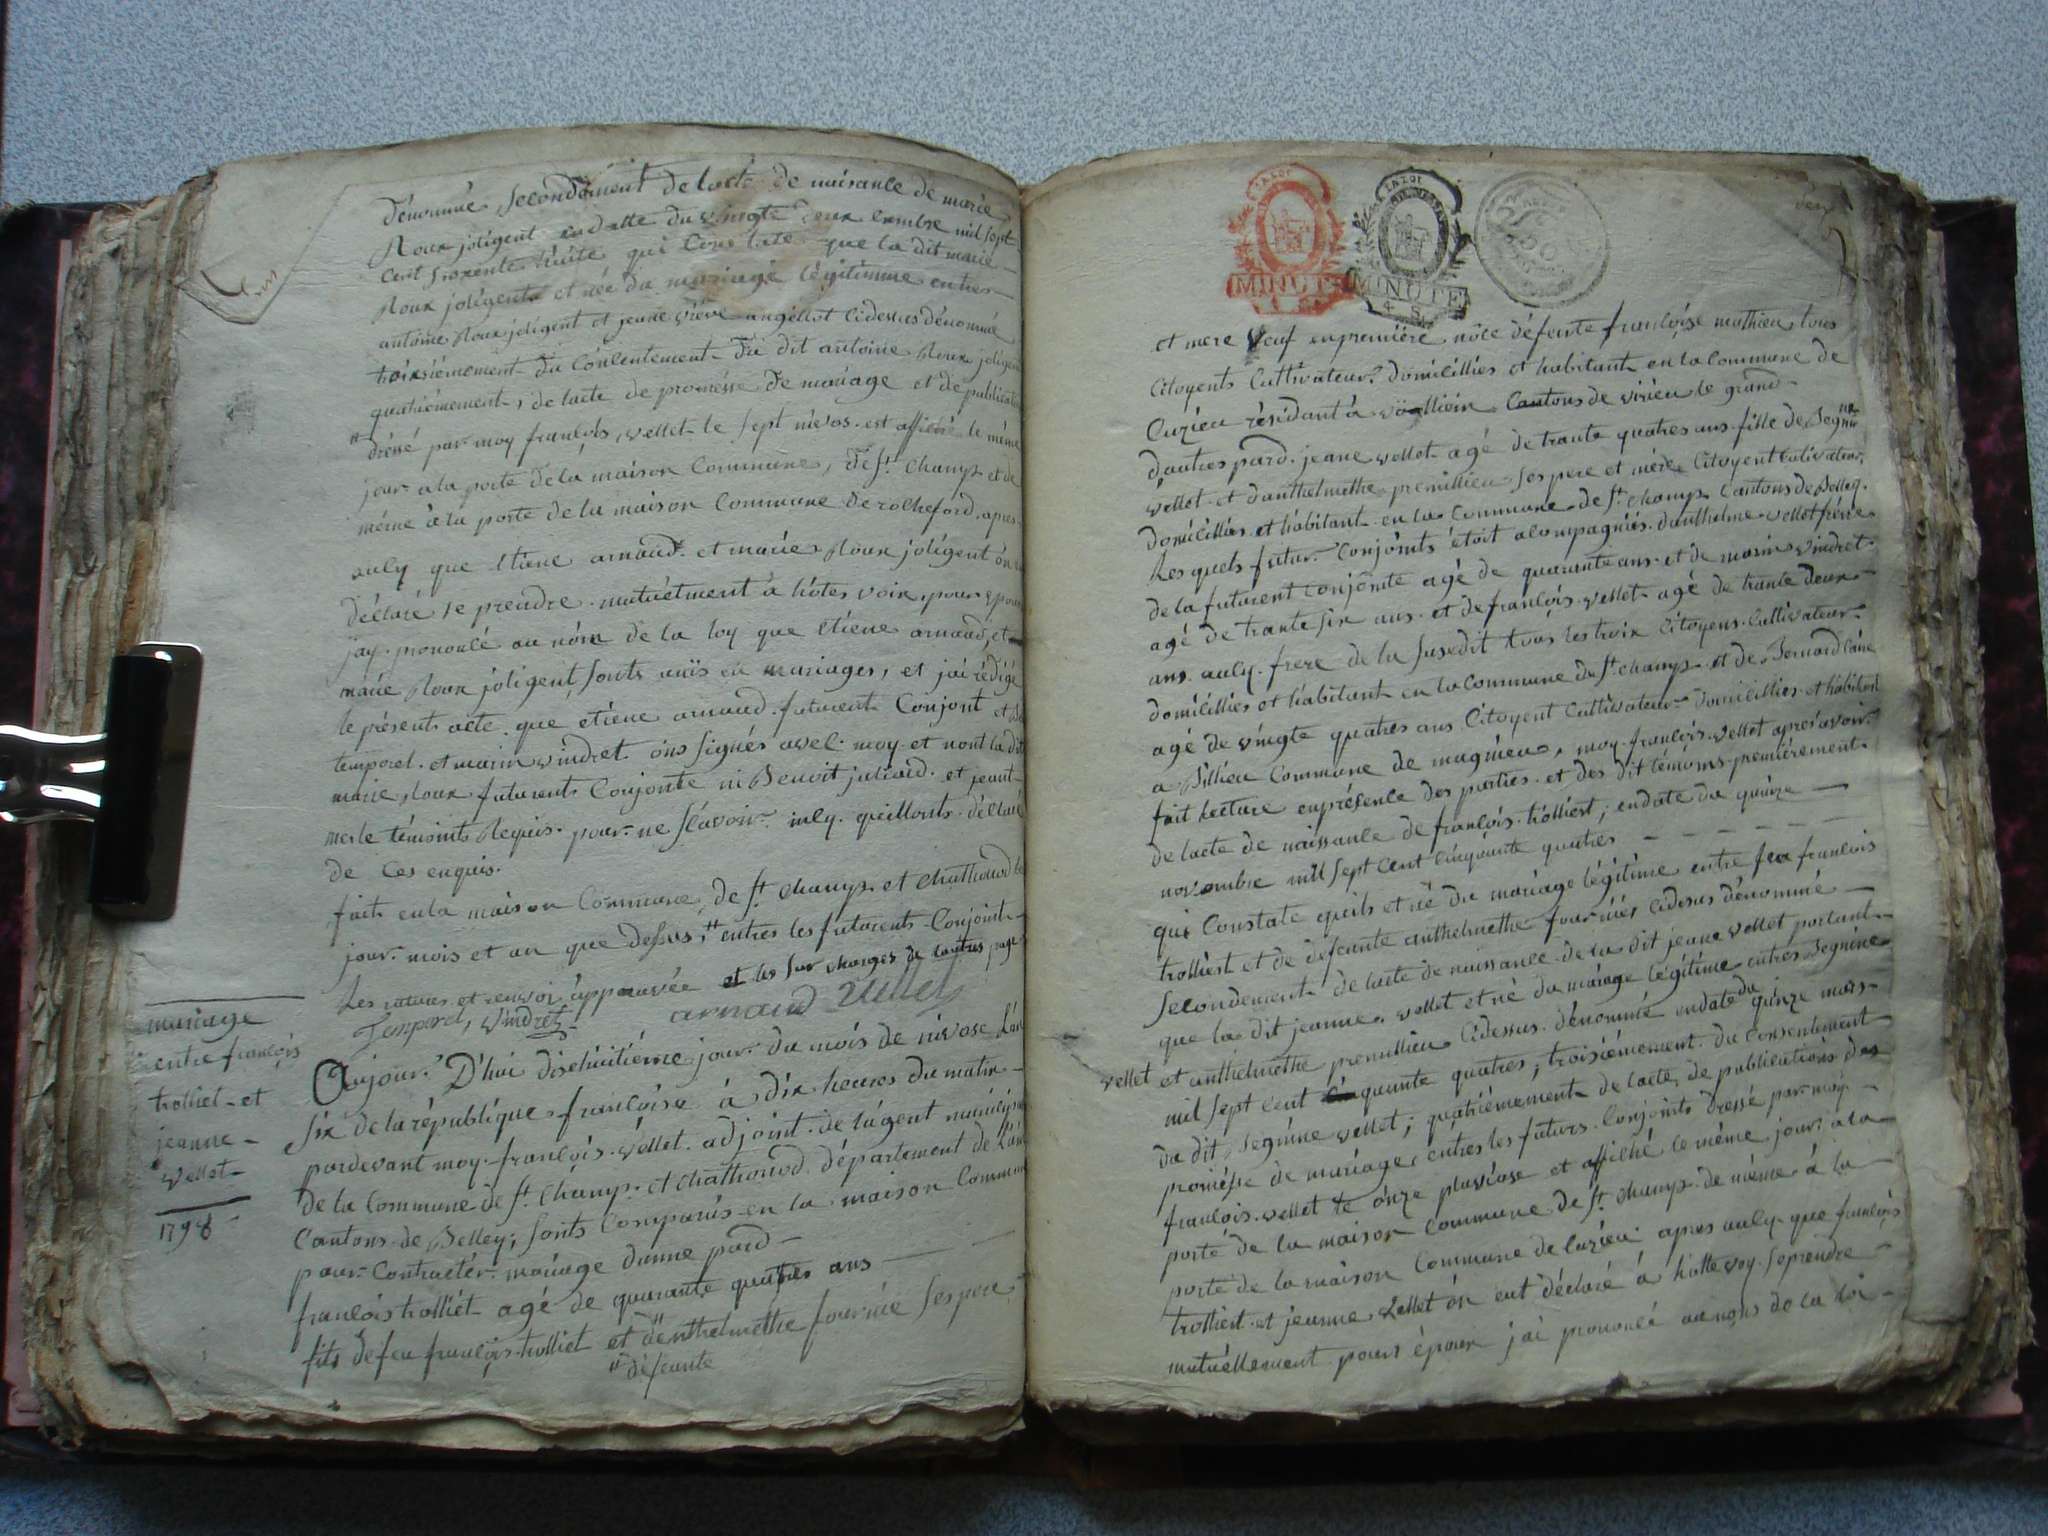 dénommé secondement de lacte de naisance de marie
Roux joligent en datte du vingte deux mil sept
cent soixente huite qui Constate que la dit marie
Roux joligent et née du mariage légitimme entres
antoine Roux joligent et jeane ci dessus dénommé
troisièmement du consentement du dit antoine Roux joligent
quatrièmement, de lacte de promesse de mariage et de publication
dréssé par moy françois vellet le sept nivos est affiché le même
jour a la porte de la maison Commune, de st champ et de
même à la porte de la maison Commune de rocheford apres
auly que Etiene arnaud et marie Roux joligent on
déclaré se prendre mutuèlment à hôtes voix pour épou
jay prononcé au nom de la loy que Etiene arnaud, et
marie Roux joligent sonts unis en mariages, et jai rédigé
le présents acte que etiene arnaud futurent Conjont et
temporel et marin vindret ons signés avec moy et nont la dit
marie Roux futurents Conjonte ni Benoit juliand et
merle témoints Requis pour ne sçavoir déclaré
de ces enquis.
fait en la maison Commune de st champs et Chathonod le
jour mois et an que dessus, entres les futurents Conjoint
Les ratures et renvoi approuvée et les sur charges de lautres page
Temporel, vindret arnaud Vellet
mariage
entre françois
trolliet et
jeanne
vellet
1798
Aujour D'hui dixhuitième jour du mois de nivose Lan
six de la république françoise à dix heures du matin
pardevant moy françois vellet adjoint de lagent municip
de la Commune de st champ et Chathonod département de Lain
Cantons de Belley, sonts Comparus en la maison Commune
pour Contracter mariage dunne pard
françois trolliet agé de quarante quatres ans
fils de feu françois trolliet et danthelmethe fournié ses pere
défeunte
MINUTE
MINUTE
et mere veuf en première nôce défeunte françoise mathieu tous
Citoyents Cultivateur domicilliés et habitant en la commune de
Cuzieu résidant à Cantons de virieu le grand
dautres pard jeane vellet agé de trante quatres ans fille de Segnine
vellet et danthelmethe premillieu ses pere et mére Citoyent Cultivateur
domicilliés et habitant en la Commune de st champ Cantons de Belley
Lesquels futur Conjoints étoit acompagniés danthelme vellet frére
de la futurent Conjointe agé de quarante ans et de marin vindret
agé de trante six ans et de françois vellet agé de trante deux
ans auly frere de la susdit tous les trois Citoyens Cultivateur
domicilliés et habitant en la Commune de st champ et de Bernard
agé de vingte quatres ans Citoyent Cultivateur Domicilliés et habitant
a Billieu Commune de magnieu, moy françois vellet apres avoir
fait Lecture en présence des parties et des dit témoins premièrement
de lacte de naissance de françois trolliet, en date du quinze
novembre mil sept cent cinquante quatres
qui Constate quils et né du mariage légitime entre feu françois
trolliet et de défeunte anthelmethe fournié cidesus dénommé
secondement de lacte de naissance de la dit jeane vellet portant
que la dit jeanne vellet et né du mariage légitime entres Segnine
vellet et anthelmethe premillieu cidessus dénommé en date du quinze mars
mil sept cent cinquante quatres, troisièmement du Consentement
du dit Segnine vellet, quatrièmement de lacte de publications des
promésse de mariage entres les futurs Conjoints dressé par moy
françois vellet le onze pluviose et affiché le même jour a la
porte de la maison Commune de st champ de même à la
porte de la maison Commune de Cuzieu apres auly que françois
trolliet et jeanne Vellet on eut déclaré à hotte voy se prendre
mutuellement pour époux jai prononcé au nom de la loi